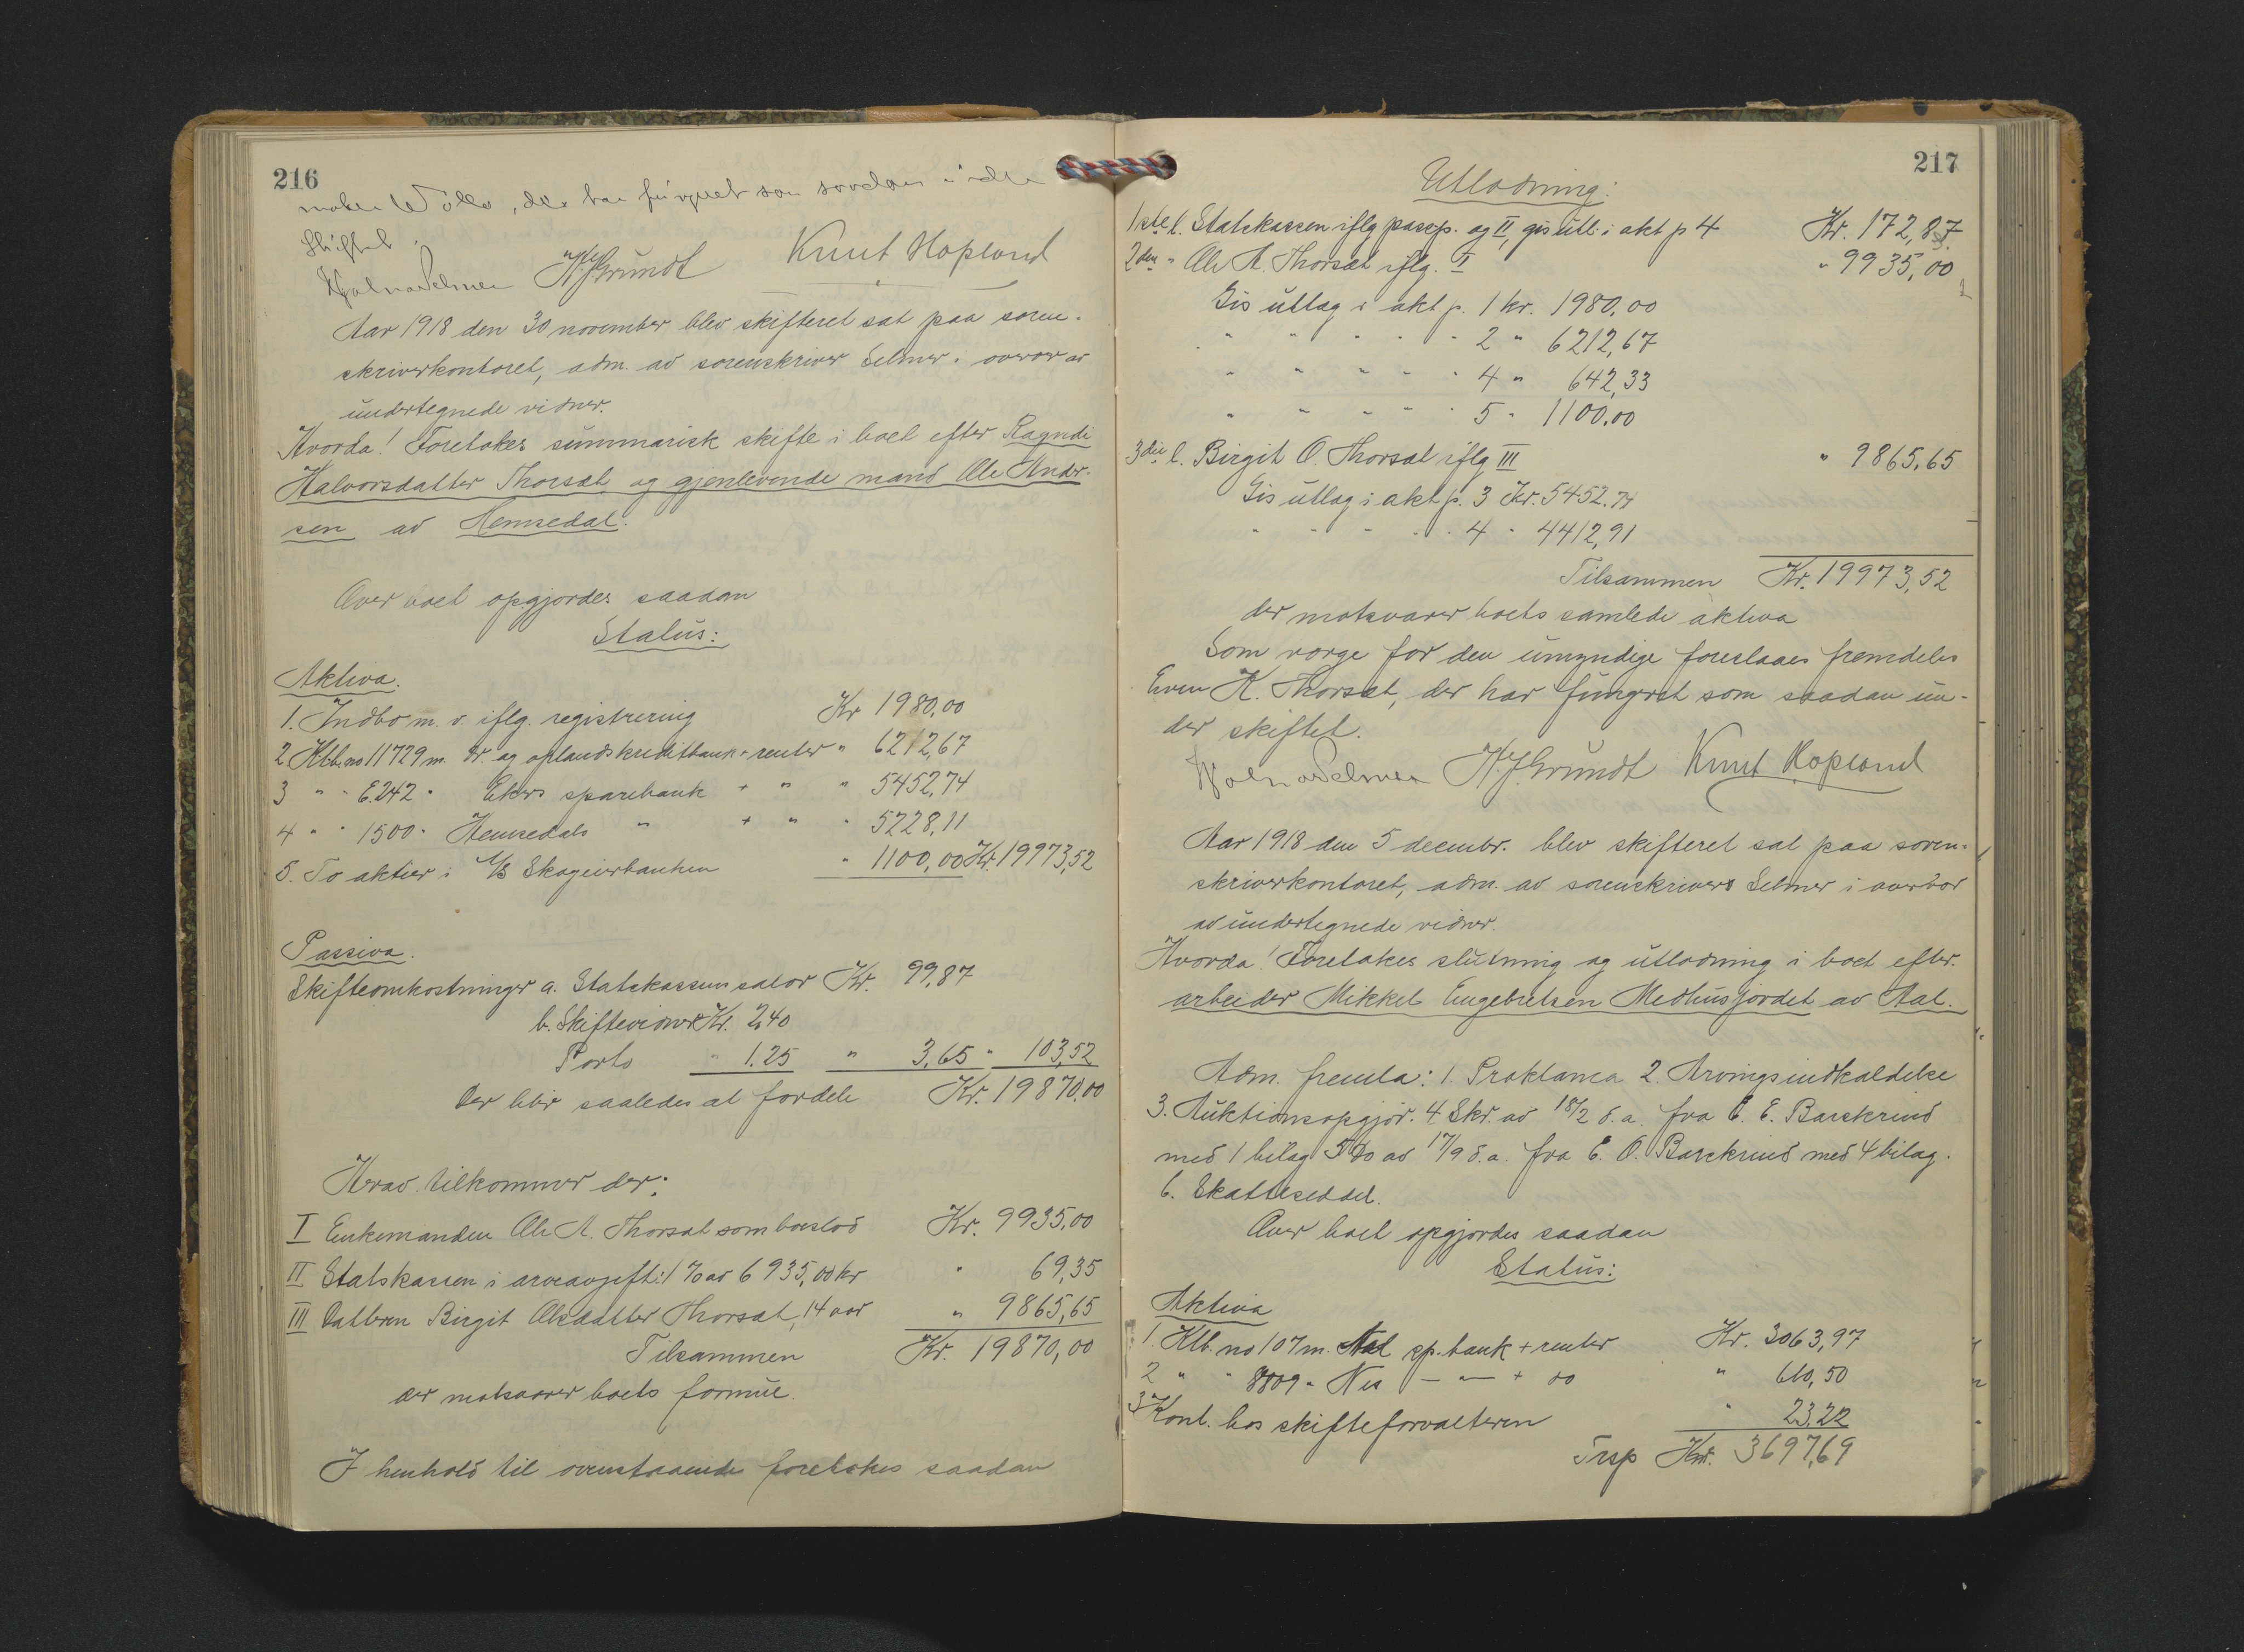 216
maker Wøllo, der har fungeret som saadan i dette
skiftet.
Hjalmar Selmer H. J. Grundt Knut Hoplund
Aar 1918 den 30 november blev skifteret sat paa soren-
skriverkontoret, adm. av sorenskriver Selmer i overvær av
undertegnede vidner.
Hvorda! Foretokes summarisk skifte i boet efter Ragndi
Halvorsdatter Thorset og gjenlevende mand Ole Ander-
sen av Hemsedal.
Over boet opgjordes saadan
Status:
Aktiva.
1. Indbo m. v. iflg. registrering Kr 1980,00
2 Ktb. no 11729 m. Dr. og oplandskreditbank + renter " 6212,67
3 " " E.242 " Ekers sparebank + " " 5452,74
4 " " 1500 " Hemsedals " + " " 5228,11
5. To aktier i A/S Skogeierbanken " 1100,00 Kr. 19973,52
Passiva.
Skifteomkostninger a. Statskassens salær Kr. 99,87
b. Skiftevidner Kr. 2,40
Porto " 1.25 " 3,65 " 103,52
Der blir saaledes at fordele Kr. 19870,00
Herav tilkommer der:
I Enkemanden Ole A. Thorset som boeslod Kr. 9935,00
II Statskassen i arveavgift: 1% av 6935,00 kr " 69,35
III Datteren Birgit Olesdatter Thorset, 14 aar " 9865,65
Tilsammen Kr. 19870,00
der motsvarer boets formue.
I henhold til ovenstaaende foretokes saadan
217
Utlodning:
1ste l. Statskassen iflg passp. og II, gis utl. i akt p 4 Kr. 172,87
2den " Ole A. Thorset iflg. I " 9935,00
Gis utlag i akt p. 1 kr. 1980,00
" " " " " 2 " 6212,67
" " " " " 4 " 642,33
" " " " " 5 " 1100.00
3die l. Birgit O. Thorset iflg III " 9865,65
Gis utlag i akt p. 3 Kr. 5452.74
" " " " " 4 " 4412,91
Tilsammen Kr. 19973,52
der motsvarer boets samlede aktiva
Som verge for den umyndige foreslaaes fremdeles
Even K. Thorset, der har fungert som saadan un-
der skiftet.
Hjalmar Selmer H. J. Grundt Knut Hoplund
Aar 1918 den 5 decembr. blev skifteret sat paa soren-
skriverkontoret, adm. av sorenskriver Selmer i overvær
av undertegnede vidner.
Hvorda! Foretokes slutning og utlodning i boet efter
arbeider Mikkel Engebretsen Medhusjordet av Aal.
Adm. fremla: 1. Proklama 2. Arvingsindkaldelse
3. Auktionsopgjør. 4 Skr. av 18/2 d. a. fra E. E. Barskrind
med 1 bilag 5 Do av 17/9 d. a. fra E. O. Barskrind med 4 bilag.
6. Skatteseddel.
Over boet opgjordes saadan
Status:
Aktiva
1. Ktb. no 107 m. Aal sp. bank + renter Kr. 3063,97
2 " " 8809 " Nes — " — + do " 610,50
3 Kont. hos skifteforvalteren " 23.22
Trsp Kr. 3697,69